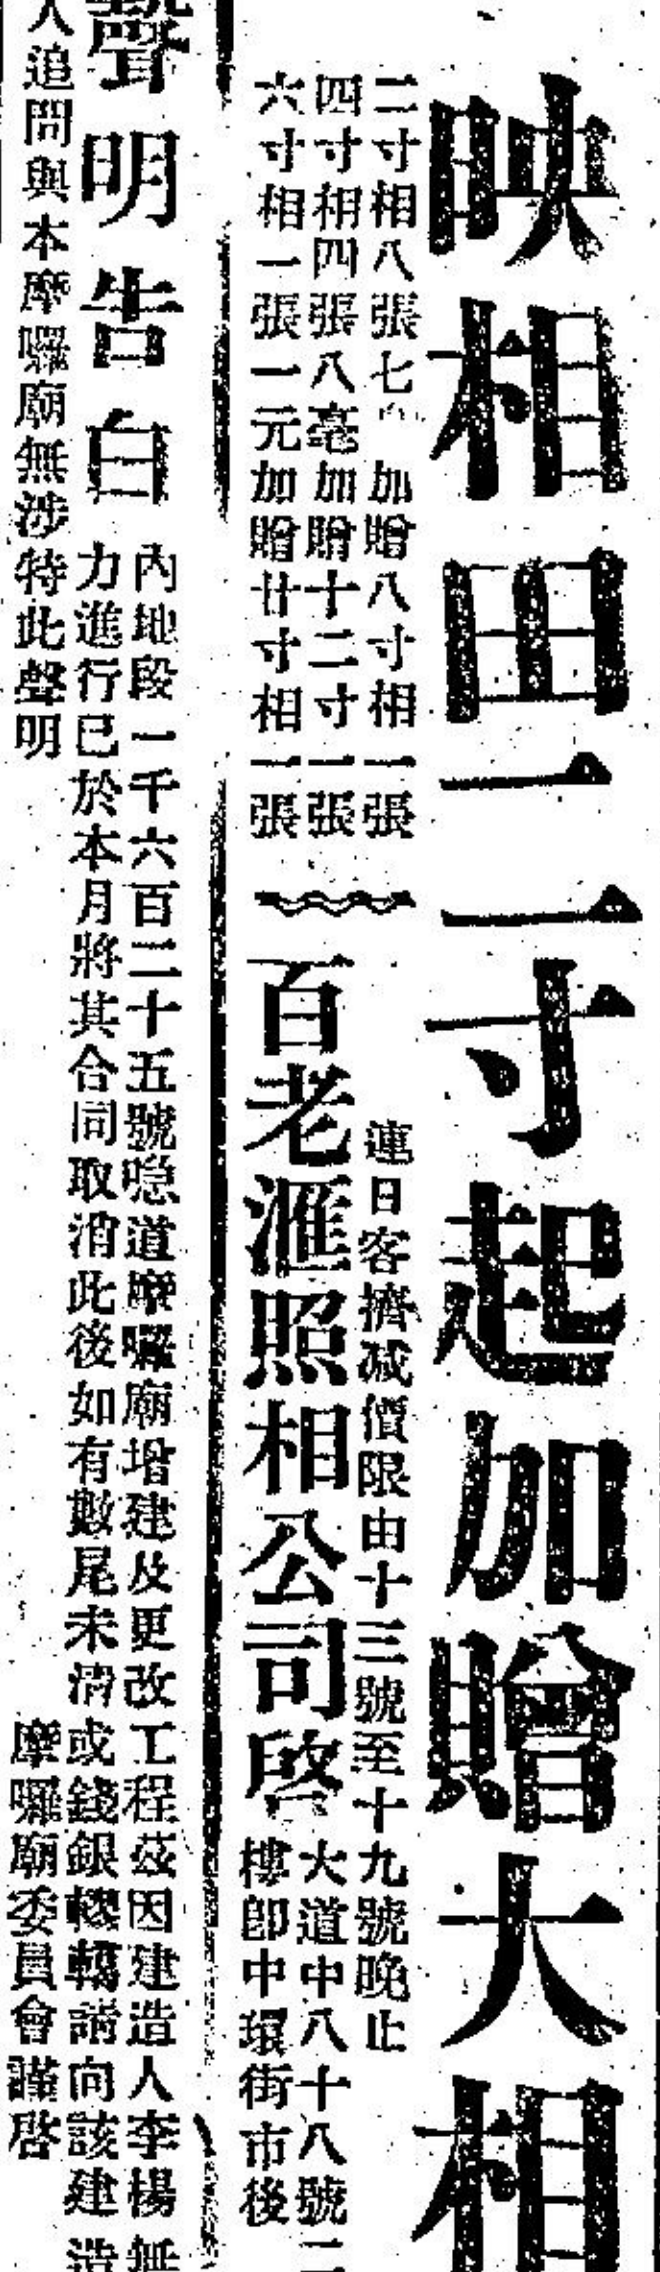 映相由二寸起加贈大相
二寸相八張七 加贈八寸相一張
四寸相四張八毫加贈十二寸一張
六寸相一張一元加贈廿寸相一張
連日客擠減價限由十三號至十九號晚止
百老滙照相公司啓
大道中八十八號二
樓卽中環街市後
聲明告白
內地段一千六百二十五號 道摩囉廟增建及更改工程茲因建造人李楊無
力進行已於本月將其合同取消此後如有數尾未清或錢銀轇轕請向該建造
人追問與本摩囉廟無涉特此聲明
摩囉廟委員會謹啓